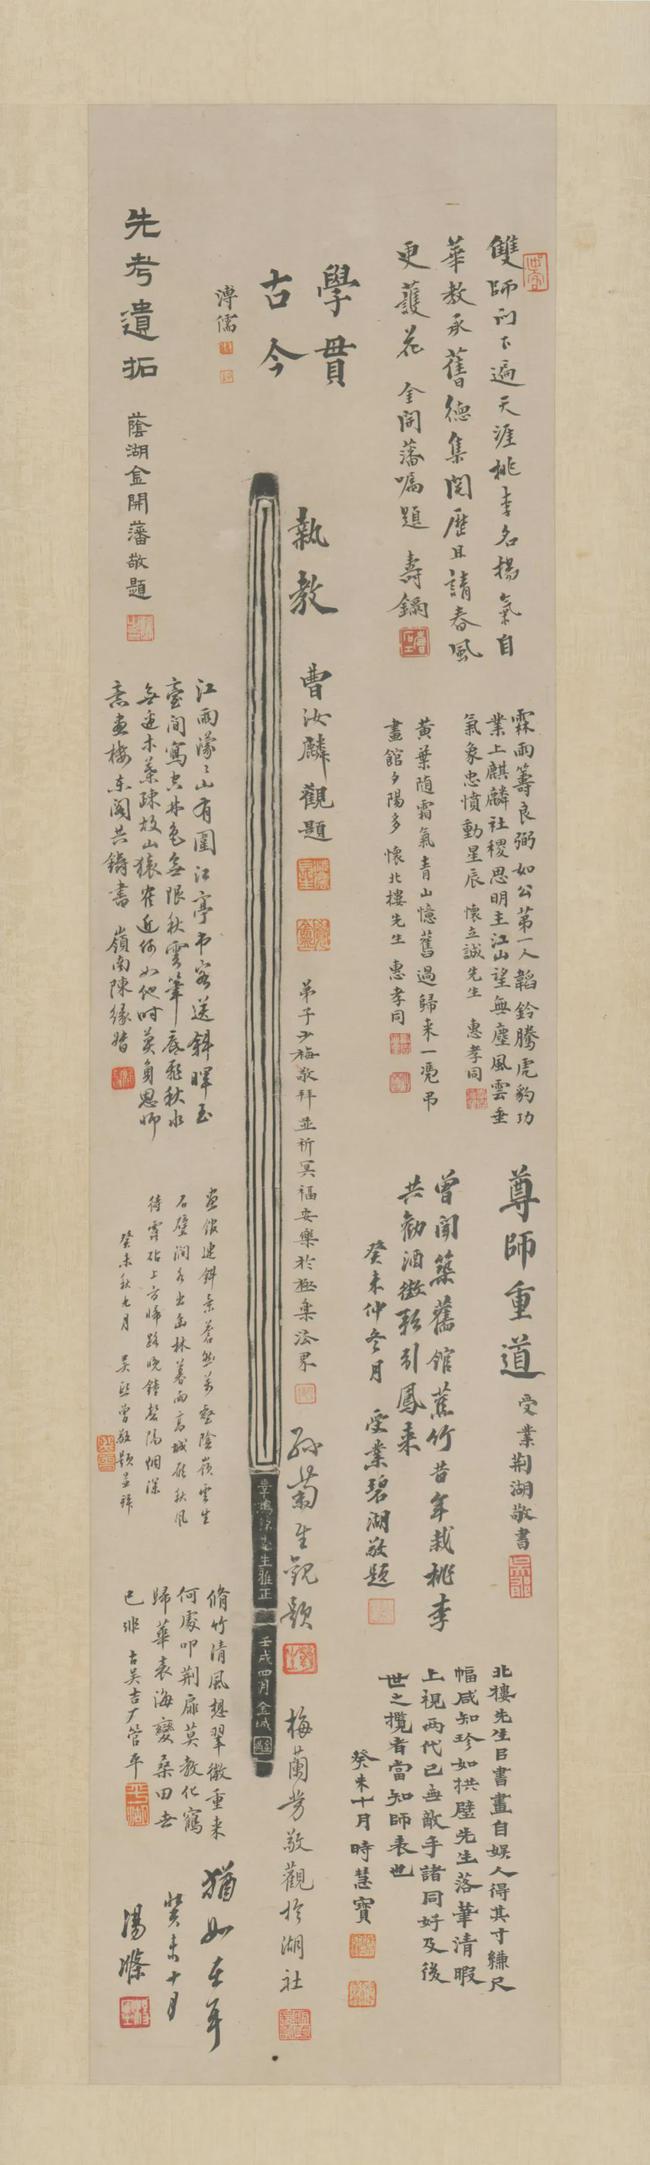 雙師門下遍天涯桃李名揚氣自
華教承舊德集閱歷且請春風
更護花 金開藩囑題 壽鑈
學貫
古今
溥儒
先考遺拓
蔭湖金開藩敬題
執教
曹汝麟觀題
弟子少梅敬拜並祈冥福安樂於極樂法界
孫菊生觀題
梅蘭芳敬觀於湖社
霖雨籌良弼如公第一人韜鈐騰虎豹功
業上麒麟社稷思明主江山望無塵風雲垂
氣象忠憤動星辰 懷立誠先生 惠孝同
黃葉隨霜氣青山憶舊過歸來一憑弔
畫館夕陽多 懷北樓先生 惠孝同
江雨濛々山有圍江亭弔客送斜暉玉
臺間寫空林色無限秋雲筆底飛秋水
無逆木葉疎故山猿在近何如他時莫負恩師
意畫樓東閣共鑄書 嶺南陳緣督
尊師重道
受業荆湖敬書
曾聞築舊館蕉竹昔年栽桃李
共勸酒徵歌引鳳來
癸未仲冬月 受業碧湖敬題
畫館建斜景蒼然萬壑陰嶺雲生
石壁澗水出長林暮雨高城爾秋風
待霄砧上方歸路晚鐘磬隔烟深
癸未秋九月 吳熙曾敬題
章鴻 先生雅正
壬戌四月金城
脩竹清風想翠微重來
何處叩荆扉莫教化鶴
歸華表海變桑田世
已非 古吳吉厂管平
北樓先生以書畫自娛人得其寸縑尺
幅咸知珍如拱璧先生落筆清暇
上視兩代已無敵手諸同好及後
世之攬者當知師表也
癸未十月時慧寶
猶如在年
癸未十月
湯滌